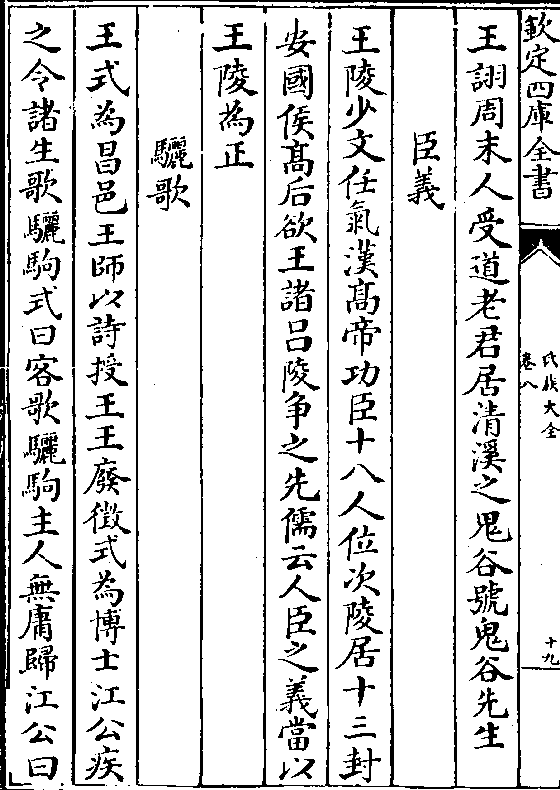 欽定四庫全書
氏族大全
卷八
十九
王詡周末人受道老君居清溪之鬼谷號鬼谷先生
臣義
王陵少文任氣漢髙帝功臣十八人位次陵居十三封
安國侯髙后欲王諸呂陵争之先儒云人臣之義當以
王陵為正
驪歌
王式為昌邑王師以詩授王王廢徵式為博士江公疾
之令諸生歌驪駒式曰客歌驪駒主人無庸歸江公曰